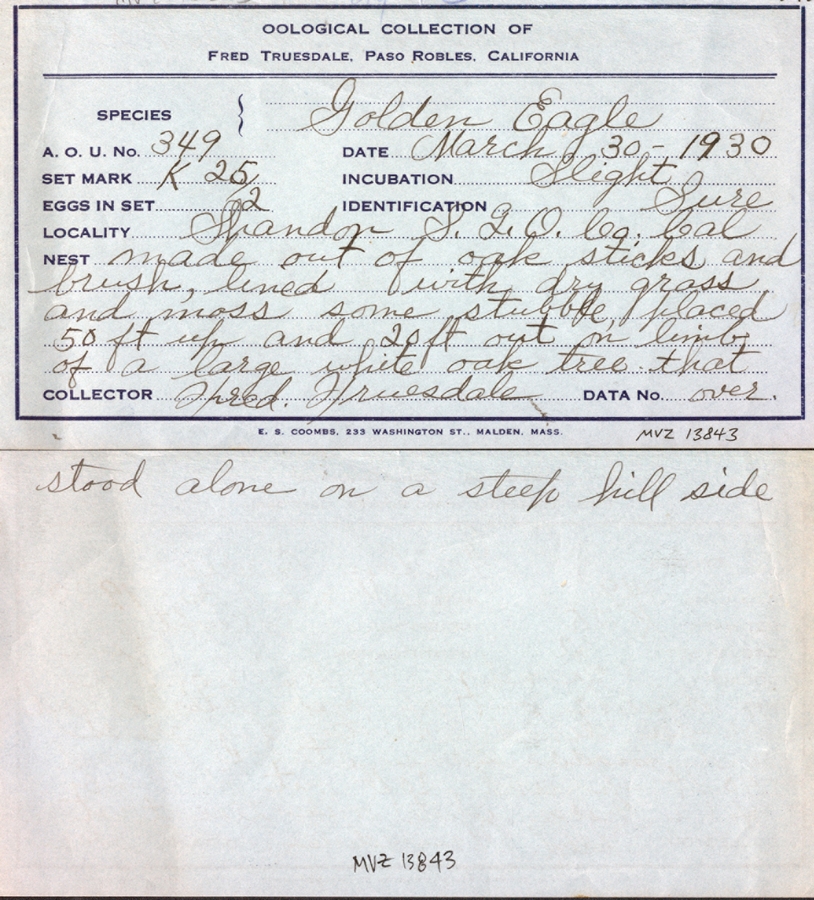 OOLOGICAL COLLECTION OF
FRED TRUESDALE, PASO ROBLES, CALIFORNIA
SPECIES } Golden Eagle
A. O. U. No. 349 DATE March 30 - 1930
SET MARK K 25 INCUBATION Slight
EGGS IN SET 2 IDENTIFICATION Sure
LOCALITY Shandon S. L. O. Co. Cal
NEST made out of oak sticks and
brush, lined with dry grass
and moss some stubble, placed
50 ft up and 20 ft out on limb
of a large white oak tree that
COLLECTOR Fred. Truesdale DATA No. over.
E. S. COOMBS, 233 WASHINGTON ST., MALDEN, MASS.
MVZ 13843
stood alone on a steep hill side
MVZ 13843